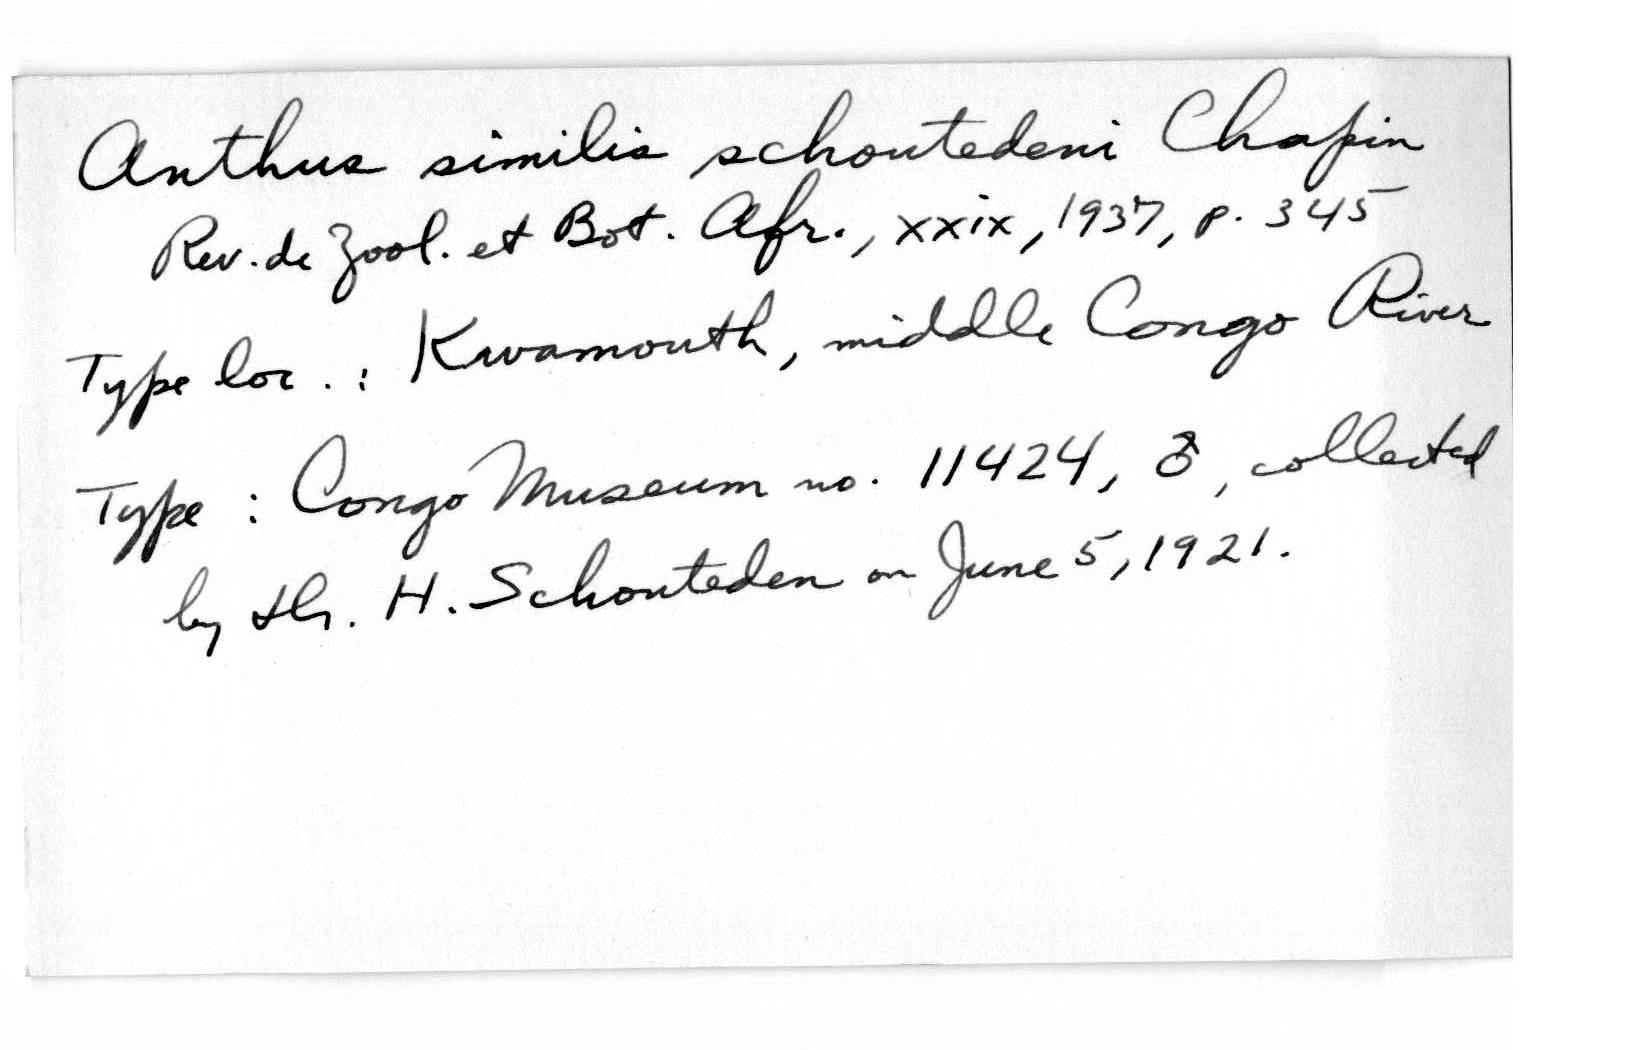 Anthus similis schoutedeni Chapin
Rev. de Zool. et Bot. Afr., xxix, 1937, p. 345
Type loc. : Kwamouth, middle Congo River
Type : Congo Museum no. 11424, ♂, collected
by Dr. H. Schouteden on June 5, 1921.